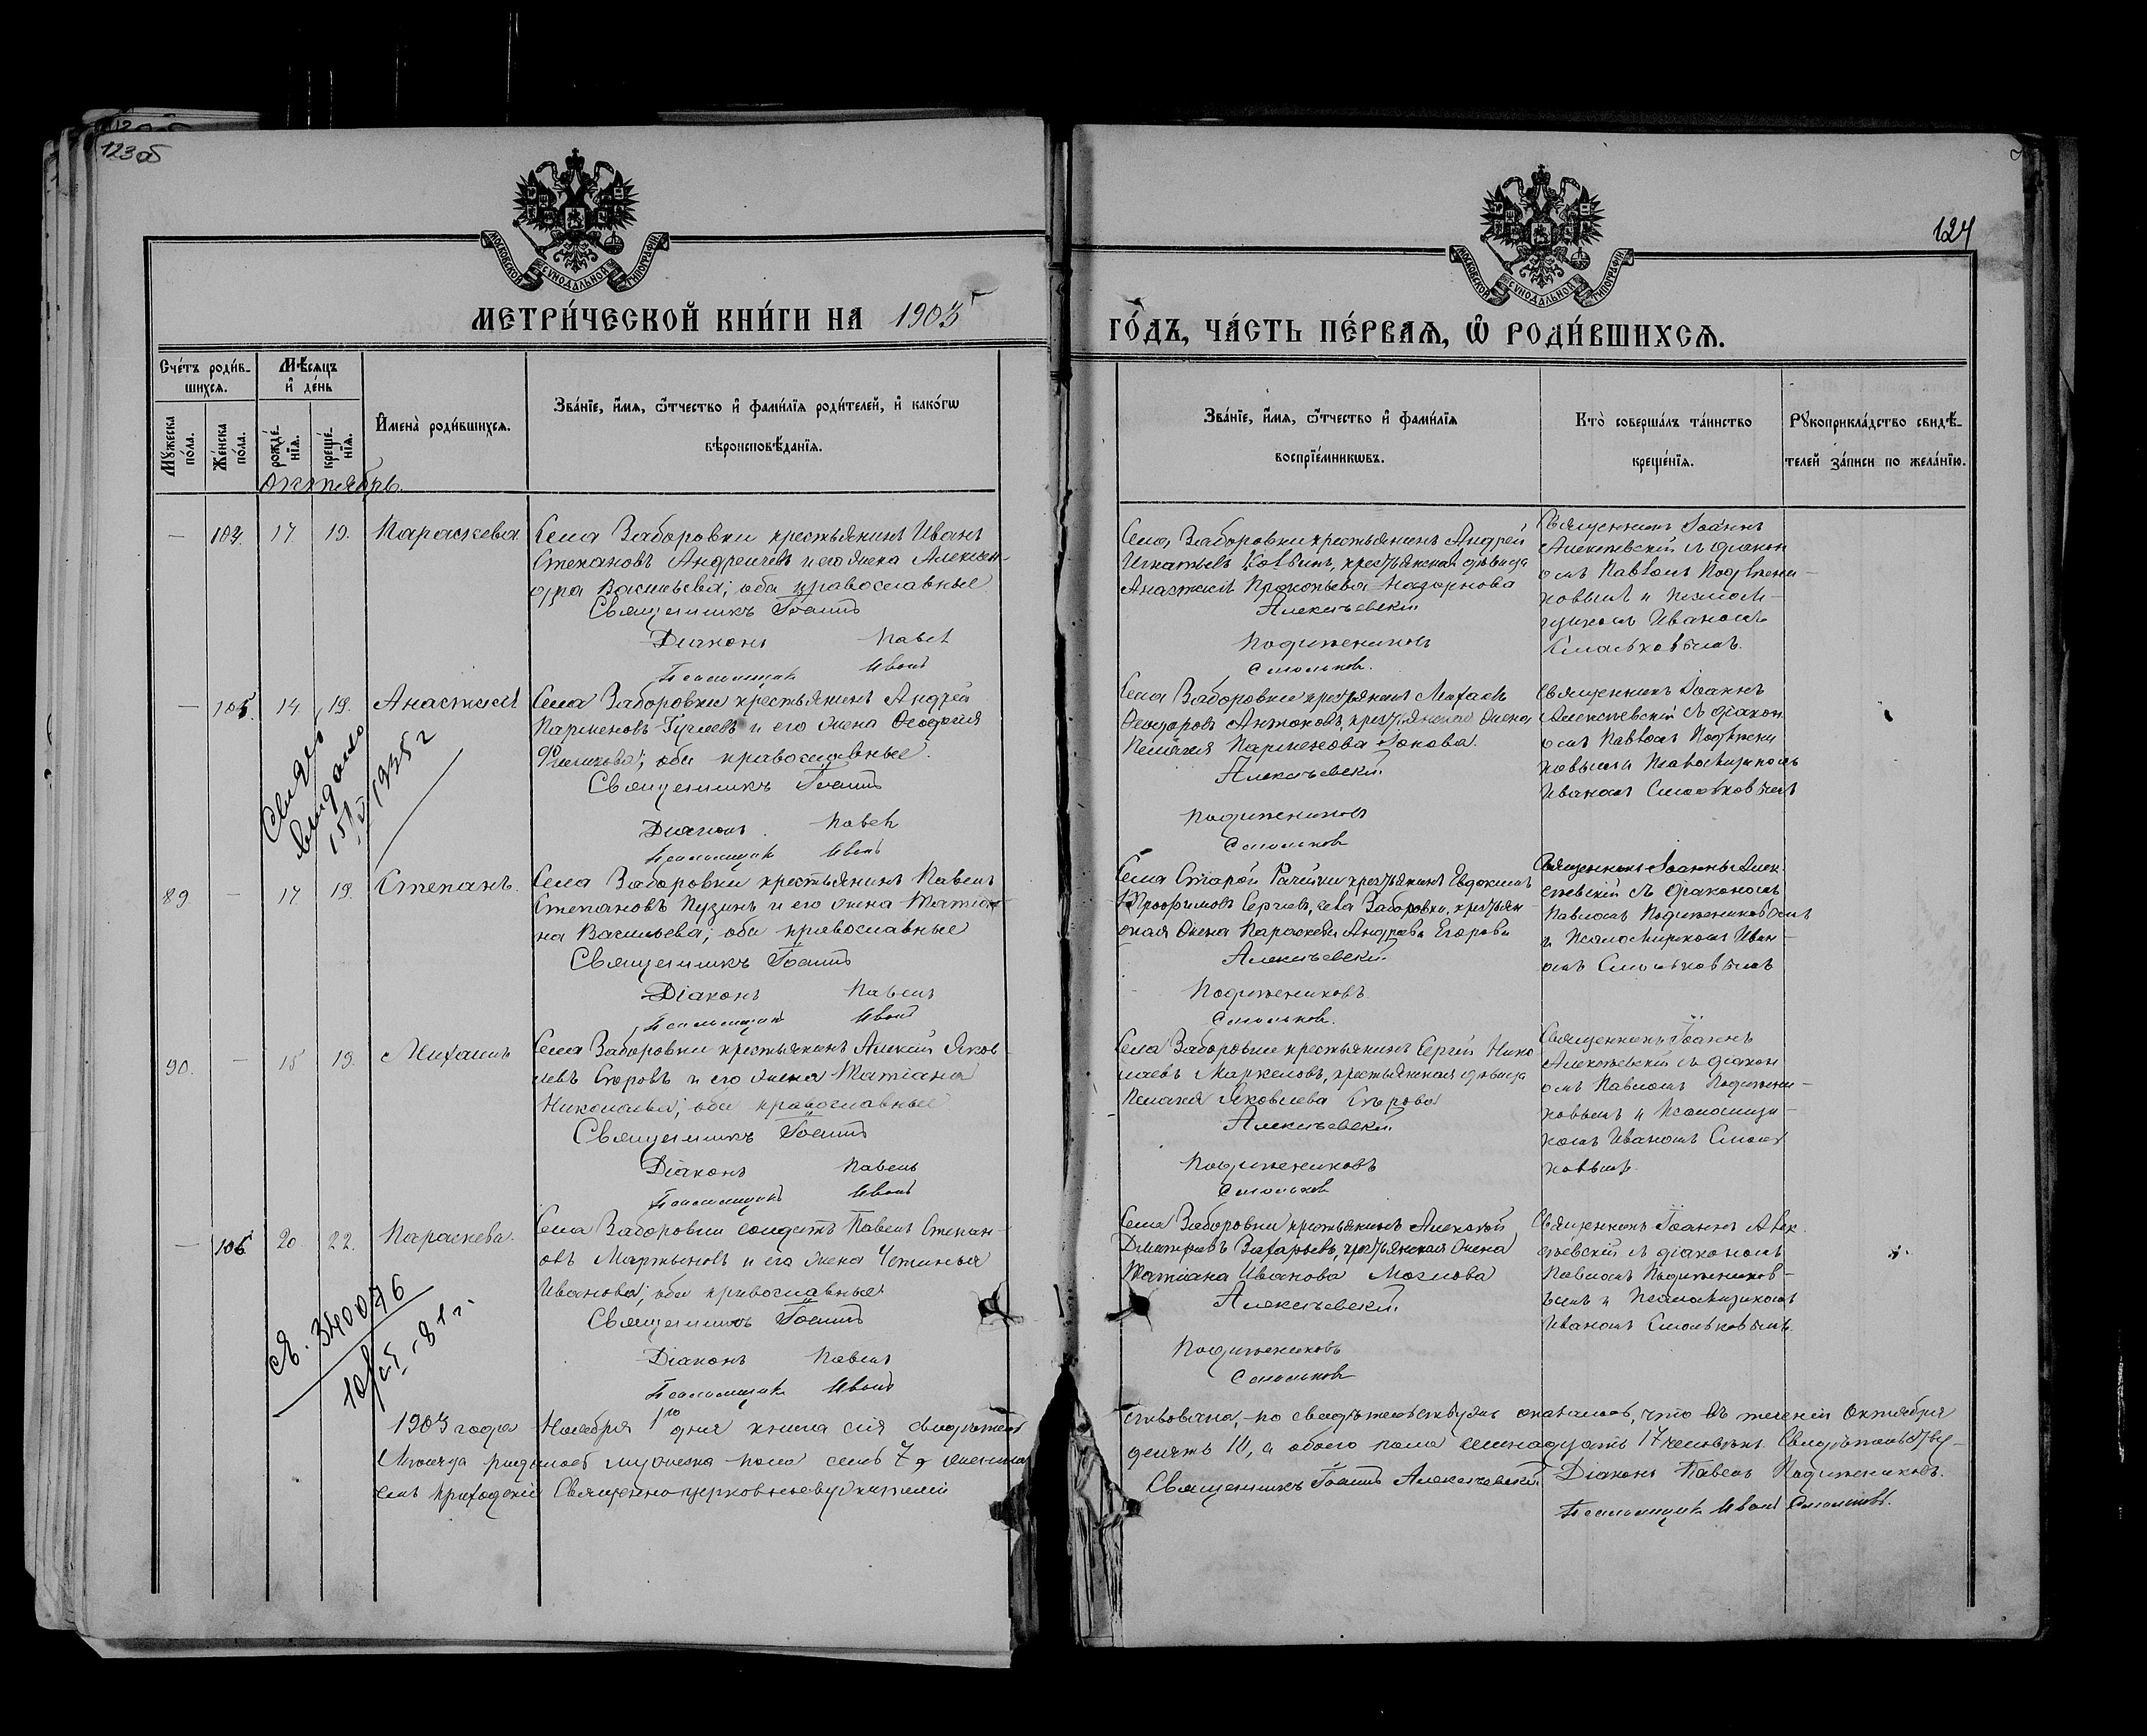 123об
124
МОСКОВСКОЙ СѴНОДАЛЬНОЙ ТИПОГРАФІИ
МОСКОВСКОЙ СѴНОДАЛЬНОЙ ТИПОГРАФІИ
МЕТРИ́ЧЕСКОЙ КНИ́ГИ НА 1903 г
ГО́ДЪ, ЧА́СТЬ ПЕ́РВАѦ, Ѡ҆ РОДИ́ВШИХСѦ.
Сче́тъ роди́в-
шихся.
Мѣ́сяцъ
и҆ де́нь
Мꙋ́жеска
по́ла.
Же́нска
по́ла.
рожде́-
нїя.
креще́-
нїя.
И҆мена̀ роди́вшихся.
Зва́нїе, и҆́мя, ѻ҆́тчество и҆ фами́лїя роди́телей, и҆ како́гѡ
вѣроисповѣ́данїя.
Зва́нїе, и҆́мя, ѻ҆́тчество и҆ фами́лїя
воспрїе́мникѡвъ.
Кто̀ соверша́лъ та́инство
креще́нїя.
Рꙋкоприкла́дство свидѣ́-
телей за́писи по жела́нїю.
Октябрь.
— 104. 17. 19. Параскева
Села Заборовки крестьянинъ Иванъ
Степановъ Андреичевъ и его жена Алексан-
дра Васильева; оба православные
Священникъ Іоаннъ
Діаконъ Павелъ
Псаломщикъ Иванъ
Села Заборовки крестьянинъ Андрей
Игнатьевъ крестьянская девица
Анастасія Прокопьева
Алексѣевскій
Подъяпениковъ
Смольковъ.
Священникъ Іоаннъ
Алексѣевскій съ діакон
омъ Павломъ
и псалом-
щикомъ Иваномъ
Смольковымъ.
— 105. 14. 19. Анастасія
Села Заборовки крестьянинъ Андрей
Парменовъ и его жена Ѳеодосія
Филипова; оба православные.
Священникъ Іоаннъ
Діаконъ Павелъ
Псаломщикъ Иванъ
Села Заборовки крестьянинъ Михаилъ
Ѳеодоровъ Антоновъ, крестьянская жена
Пелагія Парменова
Алексѣевскій
Смольковъ
Священникъ Іоаннъ
Алексѣевскій съ діакон
омъ Павломъ
и Псаломщикомъ
Иваномъ Смольковымъ
выдано
1935 г
89. — 17. 19. Степанъ.
Села Заборовки крестьянинъ Павелъ
Степановъ Пузинъ и его жена Татіа-
на Васильева; оба православные
Священникъ Іоаннъ
Діаконъ Павелъ
Псаломщикъ Иванъ
Села Старой Рачейки крестьянинъ Евдокимъ
Трофимовъ Сергѣевъ, села Заборовки, крестьян
ская жена Параскева Андреева Егорова
Алексѣевскій
Смольковъ.
Священникъ Іоаннъ Алек
сѣевскій съ діакономъ
Павломъ
и Псаломщикомъ Иван-
омъ Смольковымъ
90. — 15 19. Михаилъ
Села Заборовки крестьянинъ Алексій Яков
левъ Сѣровъ и его жена Татіана
Николаева; оба православные
Священникъ Іоаннъ
Діаконъ Павелъ
Псаломщикъ Иванъ
Села Заборовки крестьянинъ Сергій Нико
лаевъ Маркеловъ, крестьянская дѣвица
Пелагія Яковлева Сѣрова
Алексѣевскій
Смольковъ
Священникъ Іоаннъ
Алексѣевскій съ діакон
омъ Павломъ
и Псаломщи-
комъ Иваномъ Смоль
ковымъ.
— 106 20. 22. Параскева.
Села Заборовки солдатъ Павелъ Степан-
овъ Мартыновъ и его жена Устинья
Иванова; оба православные
Священникъ Іоаннъ
Діаконъ Павелъ
Псаломщикъ Иванъ
Села Заборовки крестьянинъ Алексѣй
Дмитріевъ Захарьевъ, крестьянская жена
Татіана Иванова
Алексѣевскій
Смольковъ
Священникъ Іоаннъ Алек
сѣевскій съ діакономъ
Павломъ
и Псаломщикомъ
Иваномъ Смольковымъ.
340076
1903 года Ноября 1го дня книга сія свидѣтель
ствована, по свидѣтельству оказалось, что въ теченіи Октября
Мѣсяца родилось мужеска пола семь 7 женска
десять 10, а обоего пола семнадцать 17 человѣкъ.
Священникъ Іоаннъ Алексѣевскій Діаконъ Павелъ
Псаломщикъ Иванъ Смольковъ.